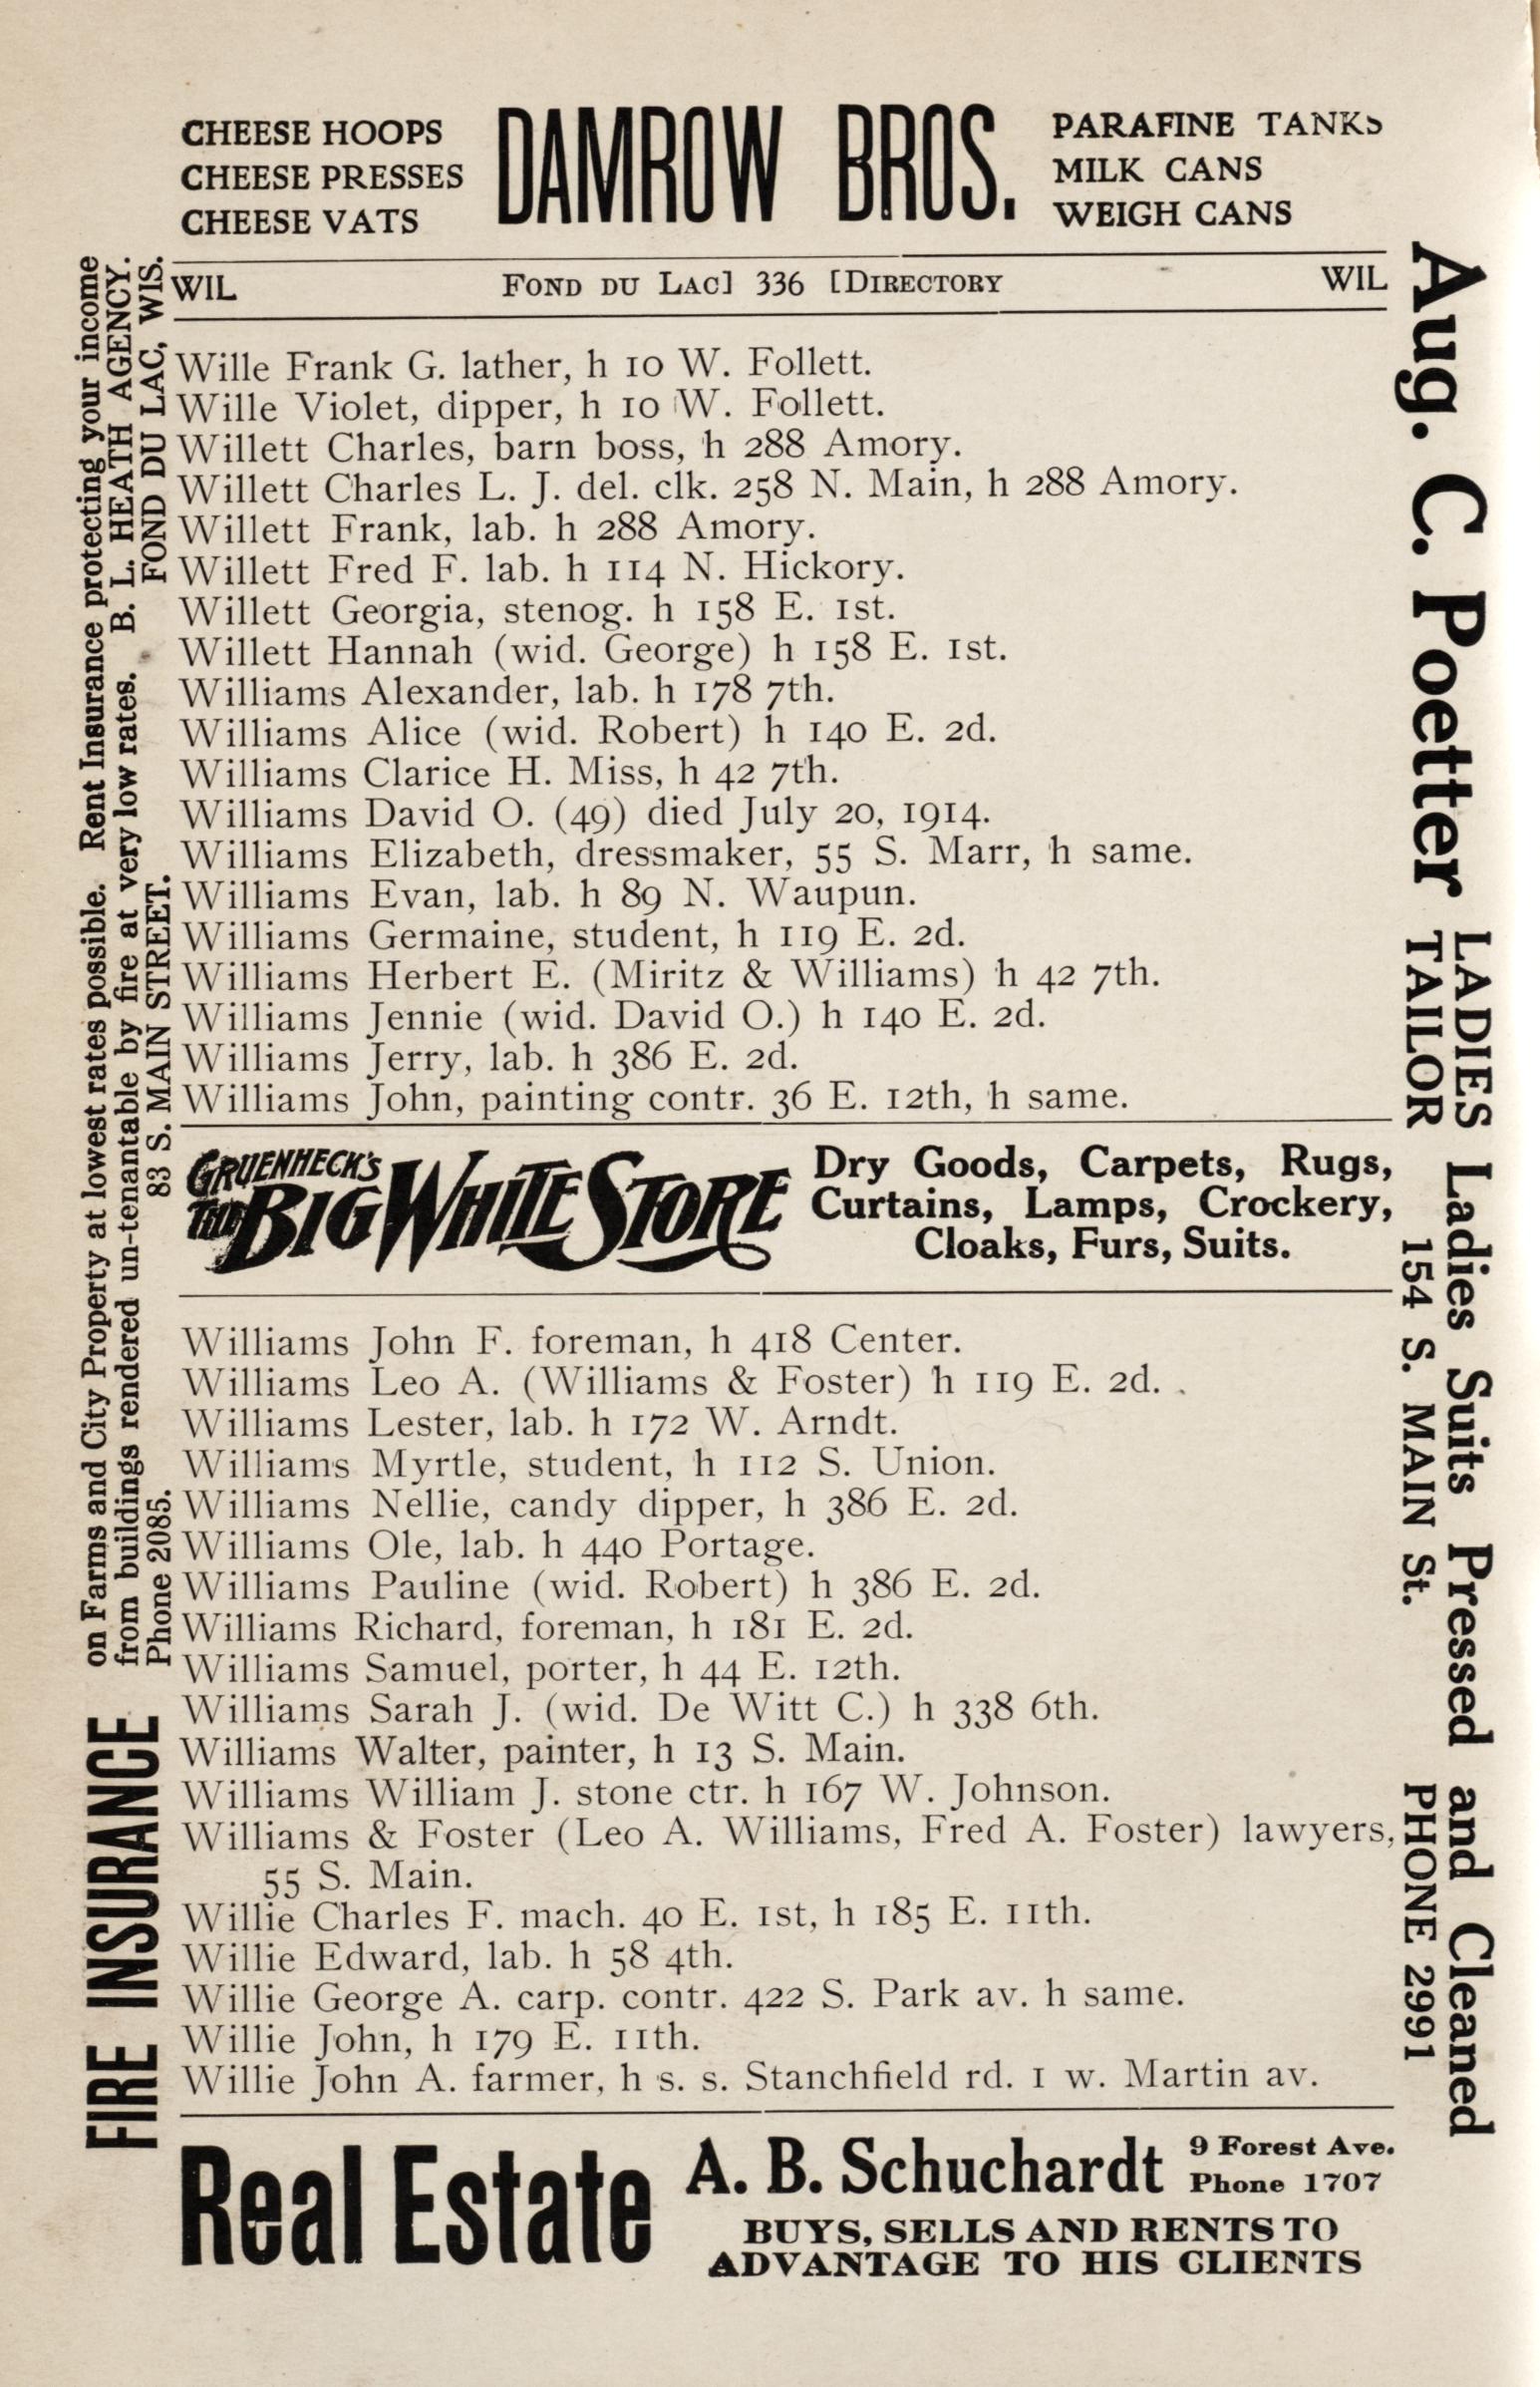 CHEESE HOOPS
CHEESE PRESSES
CHEESE VATS
DAMROW BROS.
PARAFINE TANKS
MILK CANS
WEIGH CANS
WIL FOND DU LAC] 336 [DIRECTORY WIL
Wille Frank G. lather, h 10 W. Follett.
Wille Violet, dipper, h 10 W. Follett.
Willett Charles, barn boss, h 288 Amory.
Willett Charles L. J. del. clk. 258 N. Main, h 288 Amory.
Willett Frank, lab. h 288 Amory.
Willett Fred F. lab. h 114 N. Hickory.
Willett Georgia, stenog. h 158 E. 1st.
Willett Hannah (wid. George) h 158 E. 1st.
Williams Alexander, lab. h 178 7th.
Williams Alice (wid. Robert) h 140 E. 2d.
Williams Clarice H. Miss, h 42 7th.
Williams David O. (49) died July 20, 1914.
Williams Elizabeth, dressmaker, 55 S. Marr, h same.
Williams Evan, lab. h 89 N. Waupun.
Williams Germaine, student, h 119 E. 2d.
Williams Herbert E. (Miritz & Williams) h 42 7th.
Williams Jennie (wid. David O.) h 140 E. 2d.
Williams Jerry, lab. h 386 E. 2d.
Williams John, painting contr. 36 E. 12th, h same.
GRUENHECK'S
THE BIG WHITE STORE
Dry Goods, Carpets, Rugs,
Curtains, Lamps, Crockery,
Cloaks, Furs, Suits.
Williams John F. foreman, h 418 Center.
Williams Leo A. (Williams & Foster) h 119 E. 2d.
Williams Lester, lab. h 172 W. Arndt.
Williams Myrtle, student, h 112 S. Union.
Williams Nellie, candy dipper, h 386 E. 2d.
Williams Ole, lab. h 440 Portage.
Williams Pauline (wid. Robert) h 386 E. 2d.
Williams Richard, foreman, h 181 E. 2d.
Williams Samuel, porter, h 44 E. 12th.
Williams Sarah J. (wid. De Witt C.) h 338 6th.
Williams Walter, painter, h 13 S. Main.
Williams William J. stone ctr. h 167 W. Johnson.
Williams & Foster (Leo A. Williams, Fred A. Foster) lawyers,
55 S. Main.
Willie Charles F. mach. 40 E. 1st, h 185 E. 11th.
Willie Edward, lab. h 58 4th.
Willie George A. carp. contr. 422 S. Park av. h same.
Willie John, h 179 E. 11th.
Willie John A. farmer, h s. s. Stanchfield rd. 1 w. Martin av.
Real Estate
A. B. Schuchardt
9 Forest Ave.
Phone 1707
BUYS, SELLS AND RENTS TO
ADVANTAGE TO HIS CLIENTS
FIRE INSURANCE
on Farms and City Property at lowest rates possible. Rent Insurance protecting your income
from buildings rendered un-tenantable by fire at very low rates. B. L. HEATH AGENCY.
Phone 2085. 83 S. MAIN STREET. FOND DU LAC, WIS.
Aug. C. Poetter
LADIES
TAILOR
Ladies Suits Pressed and Cleaned
154 S. MAIN St. PHONE 2991